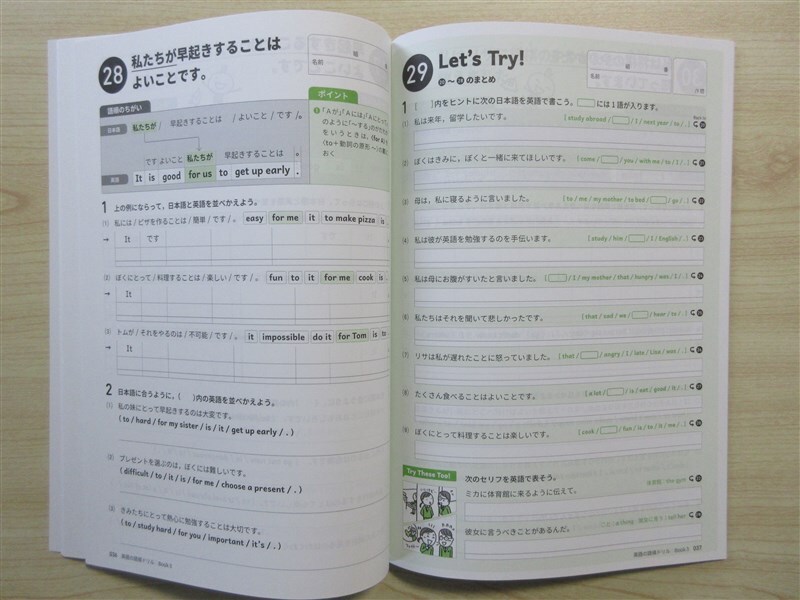 28
私たちが早起きすることは
よいことです。
組
名前
ポイント
語順のちがい
日本語 私たちが / 早起きすることは / よいこと / です / 。
です よいこと 私たちが 早起きすることは 。
英語 It is good for us to get up early .
のように「〜する」の
をいうときは、
〈to＋動詞の原形〜〉
おく
1 上の例にならって、日本語と英語を並べかえよう。
(1) 私には / ピザを作ることは / 簡単 / です / 。 easy for me it to make pizza is
→ It です
(2) ぼくにとって / 料理することは / 楽しい / です / 。 fun to it for me cook is
→ It
(3) トムが / それをやるのは / 不可能 / です / 。 it impossible do it for Tom is to
→ It
2 日本語に合うように、( )内の英語を並べかえよう。
(1) 私の妹にとって早起きするのは大変です。
( to / hard / for my sister / is / it / get up early / . )
(2) プレゼントを選ぶのは、ぼくには難しいです。
( difficult / to / it / is / for me / choose a present / . )
(3) きみたちにとって熱心に勉強することは大切です。
( to / study hard / for you / important / it's / . )
336 英語の語順ドリル Book 3
29
Let's Try!
〜 のまとめ
組 番
名前
1 [ ]内をヒントに次の日本語を英語で書こう。 には1語が入ります。
(1) 私は来年、留学したいです。 [ study abroad / / I / next year / to / . ]
(2) ぼくはきみに、ぼくと一緒に来てほしいです。 [ come / / you / with me / to / I / . ]
(3) 母は、私に寝るように言いました。 [ to / me / my mother / to bed / / go / . ]
(4) 私は彼が英語を勉強するのを手伝います。 [ study / him / / I / English / . ]
(5) 私は母にお腹がすいたと言いました。 [ / I / my mother / that / hungry / was / I / . ]
(6) 私たちはそれを聞いて悲しかったです。 [ that / sad / we / / hear / to / . ]
(7) リサは私が遅れたことに怒っていました。 [ that / / angry / I / late / Lisa / was / . ]
(8) たくさん食べることはよいことです。 [ a lot / / is / eat / good / it / . ]
(9) ぼくにとって料理することは楽しいです。 [ cook / / fun / is / to / it / me / . ]
Try These Too!
次のセリフを英語で表そう。
体育館 : the gym
ミカに体育館に来るように伝えて。
彼女に言うべきことがあるんだ。
英語の語順ドリル Book 3 337